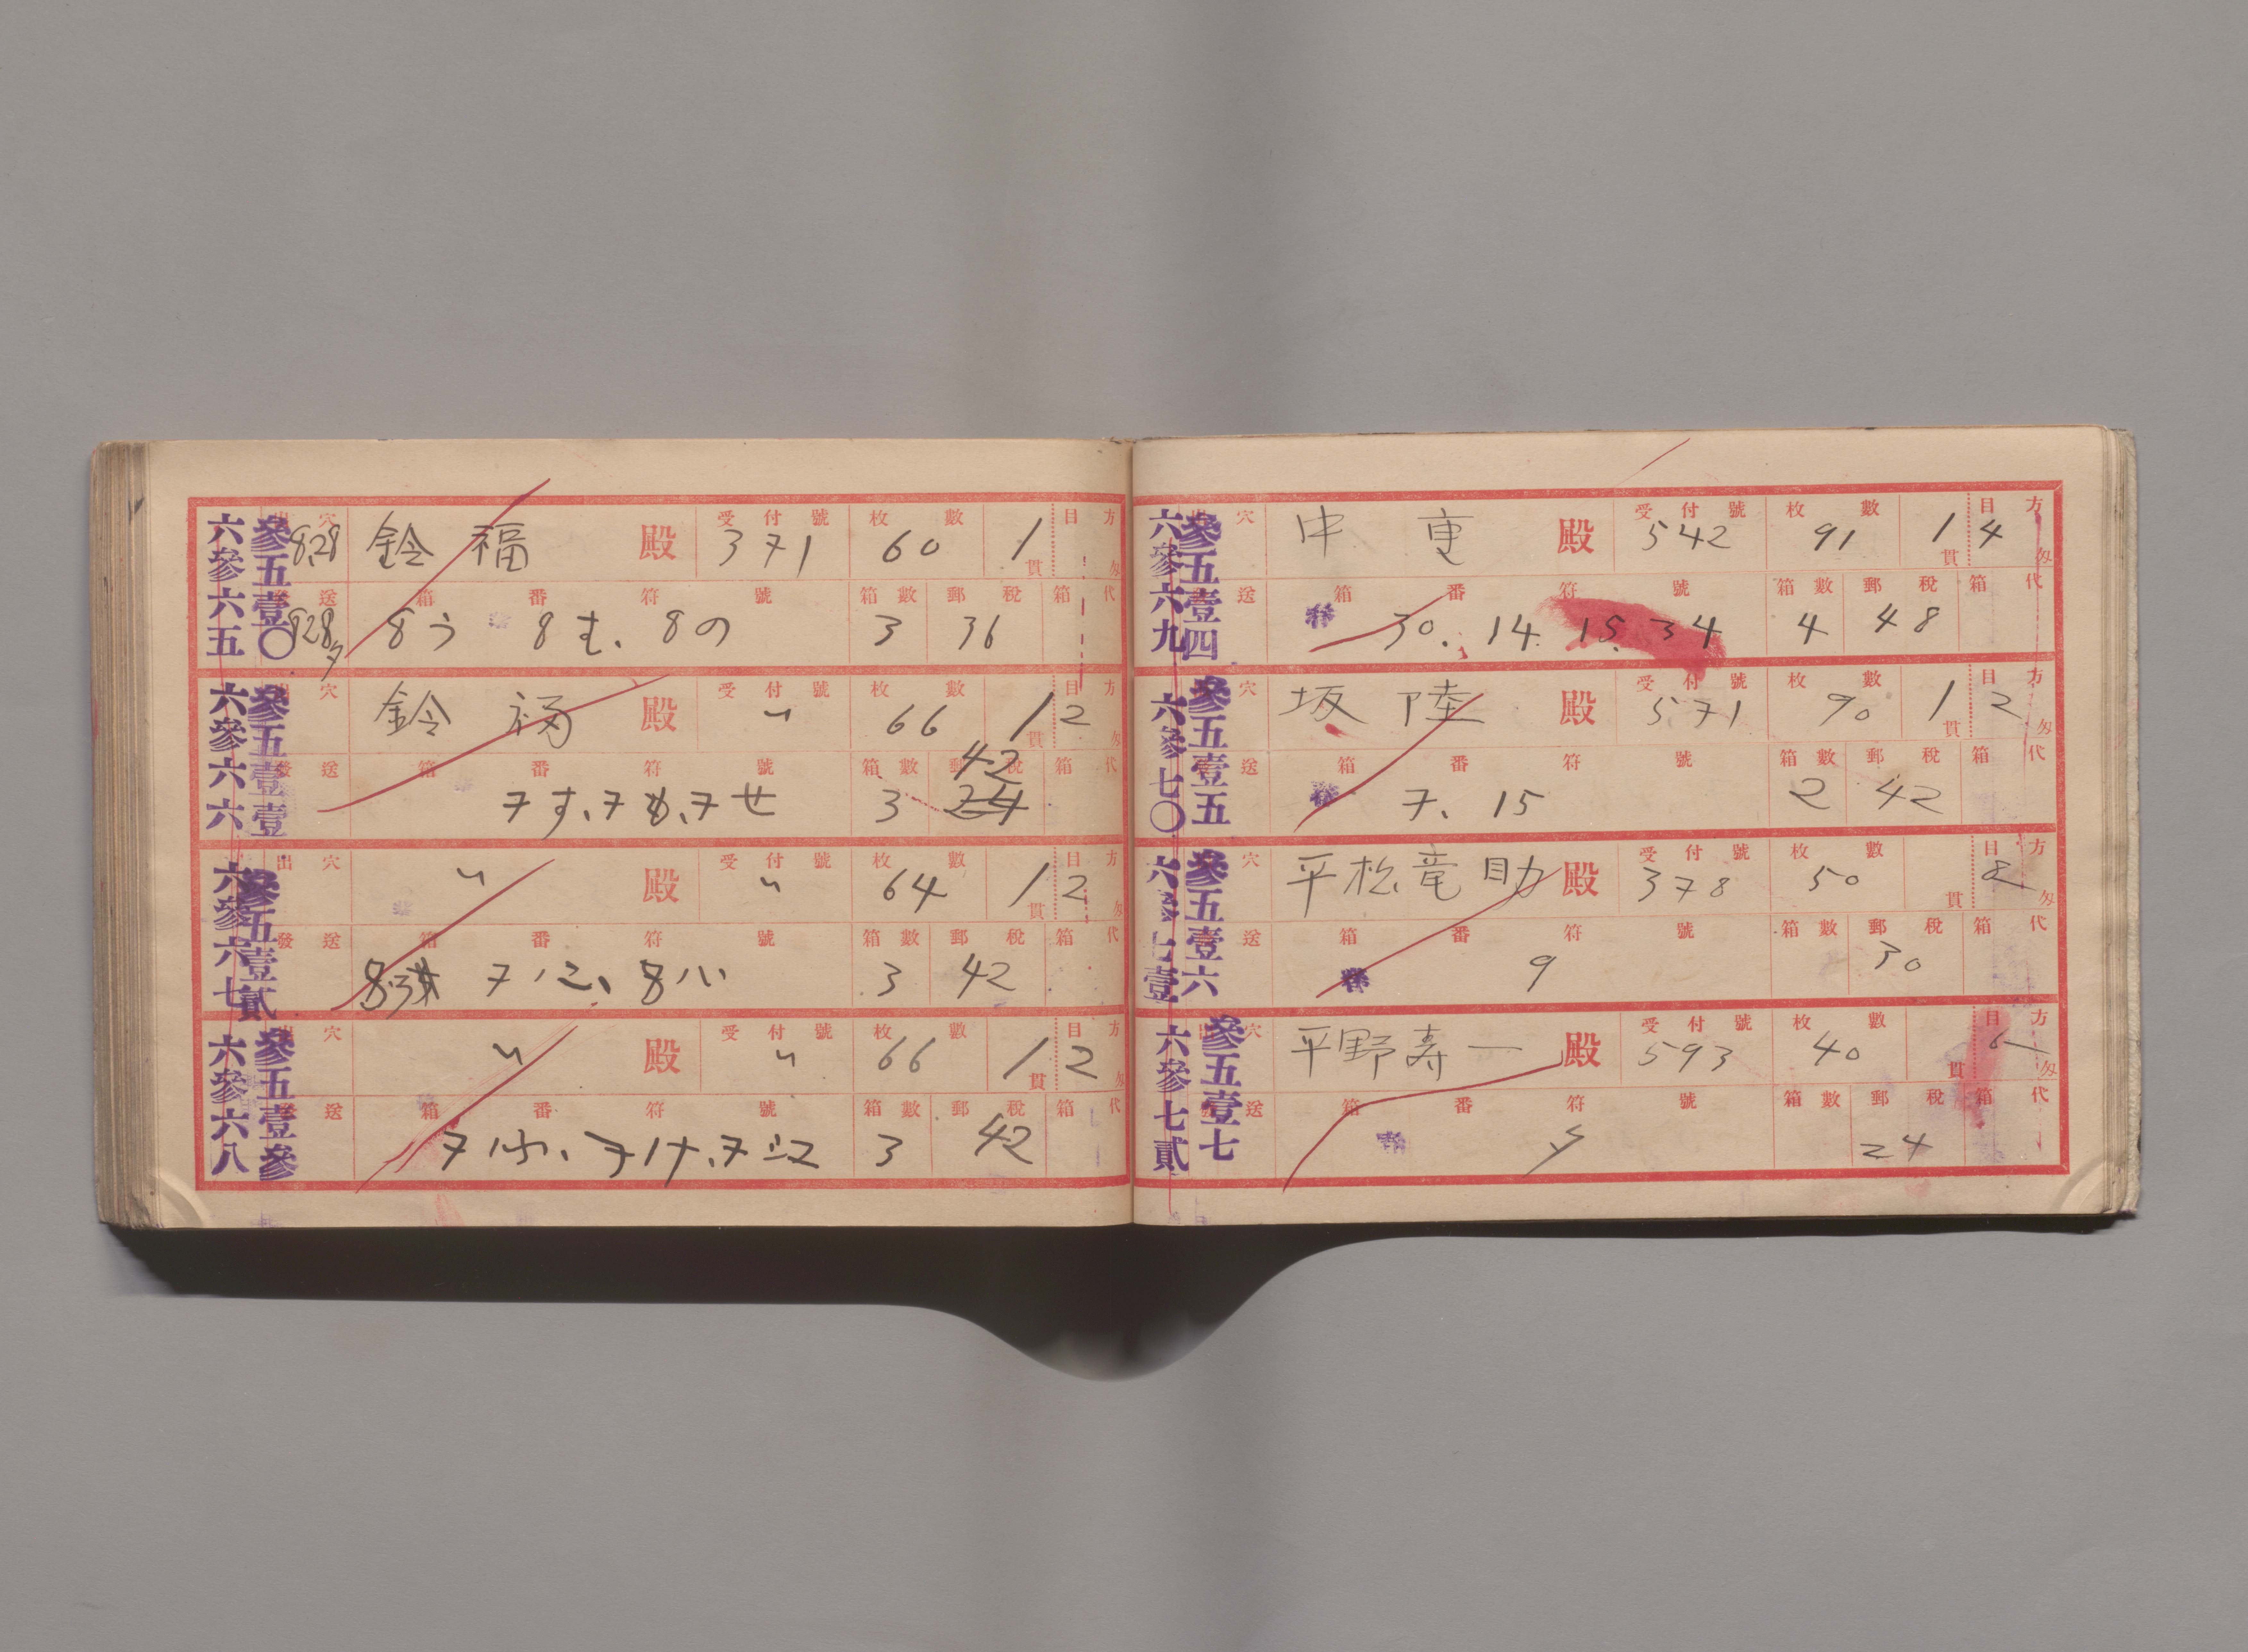 六參六五 參五壹〇 出 穴 828 鈴 福 殿 受付號 371 枚數 60 1貫 目方 匁
發 送 828 夕 箱番符號 8う 8む、8の 箱數 3 郵税 36 箱代
六參六六 參五壹壹 穴 鈴 福 殿 受付號 〃 枚數 66 1貫 目方 2 匁
發 送 箱番符號 7す、7も、7せ 箱數 3 郵税 42 24 箱代
六參六七 參五壹貳 出 穴 〃 殿 受付號 〃 枚數 64 1貫 目方 2 匁
發 送 箱番符號 8ハ 箱數 3 郵税 42 箱代
六參六八 參五壹參 出 穴 〃 殿 受付號 〃 枚數 66 1貫 目方 2 匁
發 送 箱番符號 箱數 3 郵税 42 箱代
六參六九 參五壹四 出 穴 中 更 殿 受付號 542 枚數 91 1貫 目方 4 匁
送 箱番符號 30. 14. 15. 34 箱數 4 郵税 48 箱代
六參七〇 參五壹五 穴 坂 陸 殿 受付號 571 枚數 90 1貫 目方 2 匁
送 箱番符號 7、15 箱數 2 郵税 42 箱代
六參七壹 參五壹六 穴 平松竜助 殿 受付號 378 枚數 50 貫 目方 8 匁
送 箱番符號 9 箱數 郵税 30 箱代
六參七貳 參五壹七 出 穴 平野寿一 殿 受付號 593 枚數 40 貫 目方 6 匁
送 箱番符號 箱數 郵税 24 箱代